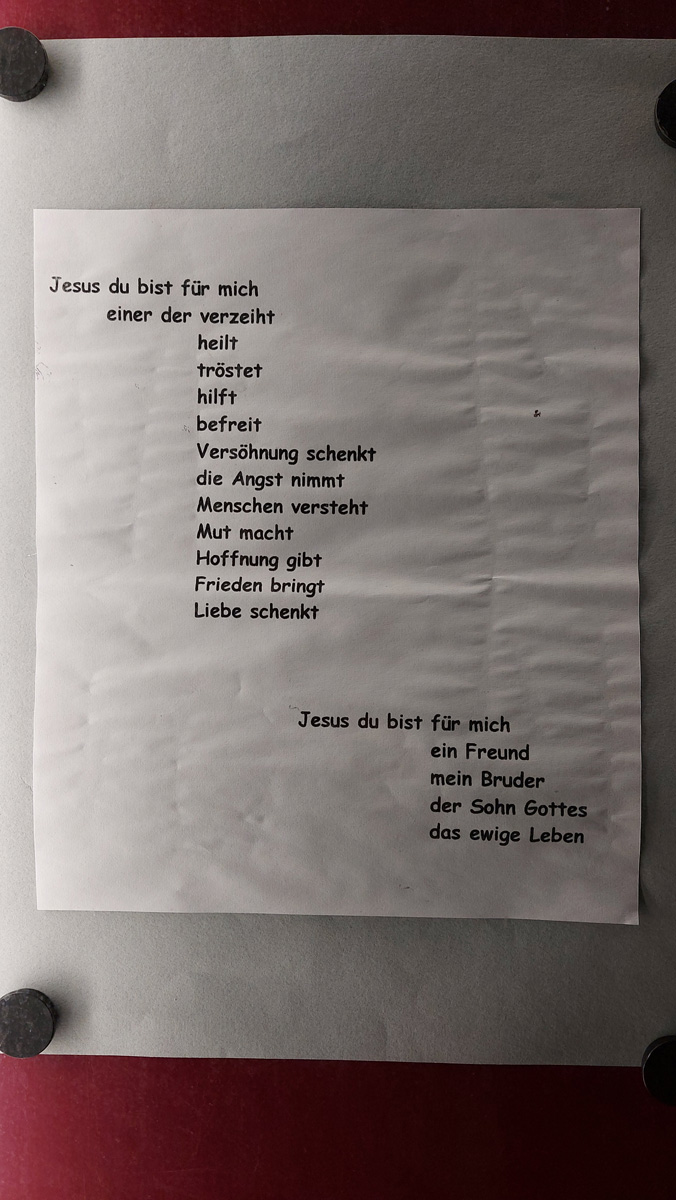 Jesus du bist für mich
einer der verzeiht
heilt
tröstet
hilft
befreit
Versöhnung schenkt
die Angst nimmt
Menschen versteht
Mut macht
Hoffnung gibt
Frieden bringt
Liebe schenkt
Jesus du bist für mich
ein Freund
mein Bruder
der Sohn Gottes
das ewige Leben